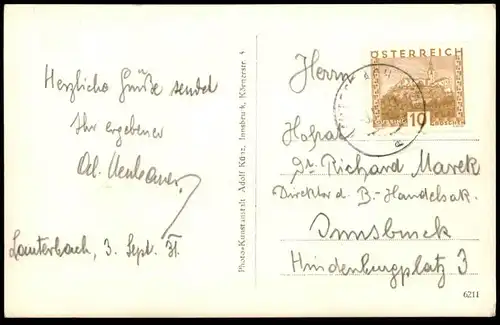 Herzliche Grüße sendet
Ihr ergebener
Ad. Neuhauser
Lauterbach, 3. Sept. 31.
Photo-Kunstanstalt Adolf Künz, Innsbruck, Körnerstr. 4
ÖSTERREICH
10
GROSCHEN
Herrn
Hofrat
Dr. Richard Marek
Direktor d. B.-Handelsak.
Innsbruck
Hindenburgplatz 3
6211